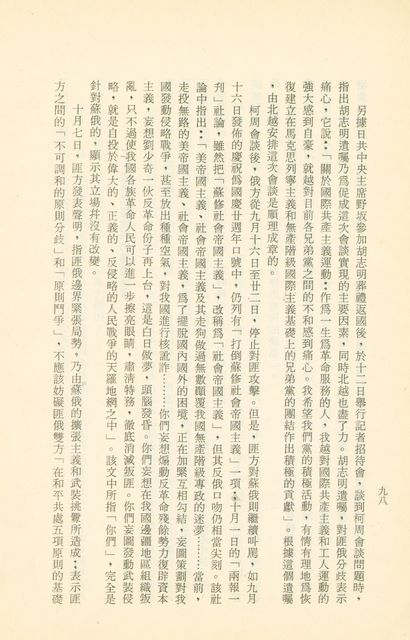 九八
另據日共中央主席野坂參加胡志明葬禮返國後，於十二日舉行記者招待會，談到柯周會談問題時，
指出胡志明遺囑乃爲促成這次會談實現的主要因素，同時北越也盡了力。胡志明遺囑，對匪俄分歧表示
痛心，它說：「關於國際共產主義運動：作爲一生爲革命服務的人，我越對國際共產主義和工人運動的
強大感到自豪，就越對目前各兄弟黨之間的不和感到痛心。我希望我們黨的積極活動，有情有理地爲恢
復建立在馬克思列寧主義和無產階級國際主義基礎上的兄弟黨的團結作出積極的貢獻」。根據這個遺囑
，由北越安排這次會談是順理成章的。
柯周會談後，俄方從九月十六日至廿二日，停止對匪攻擊。但是，匪方對蘇俄則繼續叫罵，如九月
十六日發佈的慶祝僞國慶廿週年口號中，仍列有「打倒蘇修社會帝國主義」一項；十月一日的「兩報一
刊」社論，雖然把「蘇修社會帝國主義」，改稱爲「社會帝國主義」，但其反俄口吻仍相當尖刻。該社
論中指出：「美帝國主義、社會帝國主義及其走狗做過無數顛覆我國無產階級專政的迷夢………當前，
走投無路的美帝國主義、社會帝國主義，爲了擺脫國內國外的困境，正在加緊互相勾結，妄圖策劃對我
國發動侵略戰爭，甚至放出種種空氣，對我國進行核訛詐………你們妄想煽動反革命殘餘勢力復辟資本
主義，妄想劉少奇一伙反革命份子再上台，這是白日做夢，頭腦發昏。你們妄想在我國邊疆地區組織叛
亂，只不過使我國各族革命人民可以進一步擦亮眼睛，肅清特務，徹底消滅叛匪。你們妄圖發動武裝侵
略，就是自投於偉大的、正義的、反侵略的人民戰爭的天羅地網之中」。該文中所指「你們」，完全是
針對蘇俄的，顯示其立場幷沒有改變。
十月七日，匪方發表聲明，指匪俄邊界緊張局勢，乃由蘇俄的擴張主義和武裝挑釁所造成；表示匪
方之間的「不可調和的原則分歧」和「原則鬥爭」，不應該妨礙匪俄雙方「在和平共處五項原則的基礎